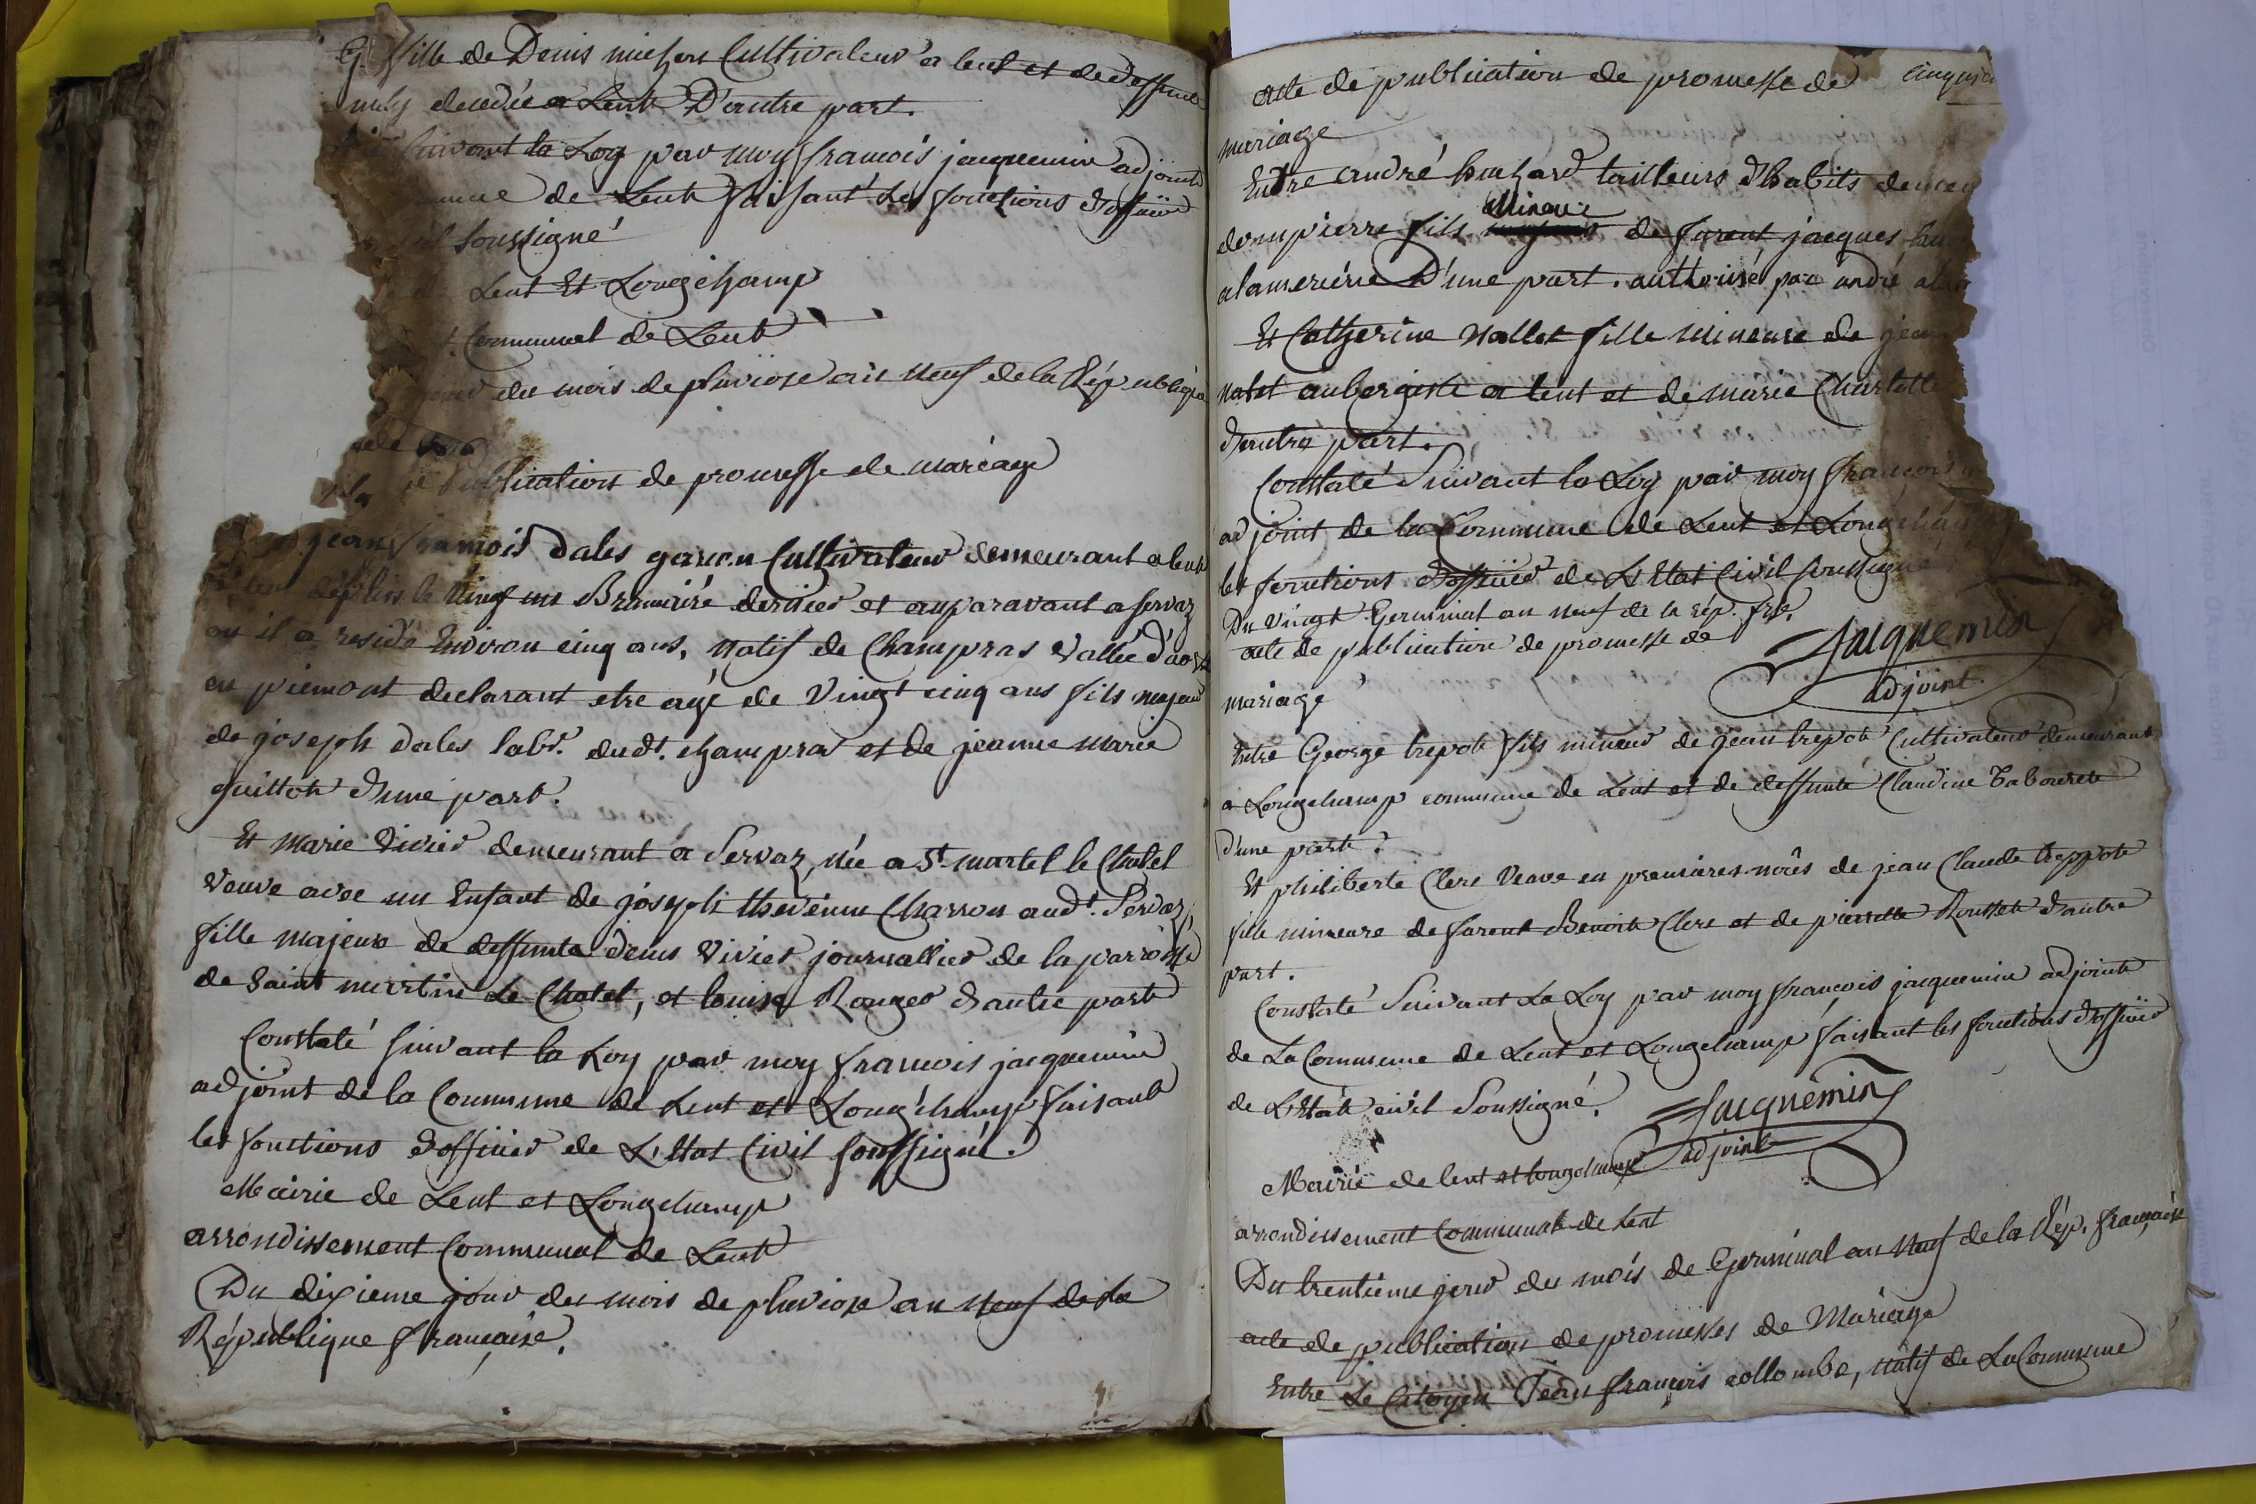 fille de Denis michon Cultivateur a lent et de deffunte
decedée a Lent D'autre part.
suivant la Loy par moy francois jacquemin adjoint
de Lent faisant les fonctions d'officier
soussigné
Lent Et Longchamp
Communal de Lent
du mois de pluviose an neuf de la République
publication de promesse de mariage
jean francois dales garcon Cultivateur demeurant a lent
depuis le vingt un Brumaire dernier et auparavant a servaz
ou il a residé Environ cinq ans, natif de Champras vallée d'aoste
en piemont declarant etre agé de vingt cinq ans fils majeur
de joseph dales labr. dudt. champras et de jeanne marie
guittot d'une part.
Et marie vivier demeurant a Servaz, née a St. martel le Chatel
veuve avec un Enfant de joseph thevenin Charron audt. Servaz,
fille majeure de deffunte denis vivier journallier de la parroisse
de saint martin Le Chatel, et louise Ranger d'autre part
Constaté suivant la Loy par moy francois jacquemin
adjoint de la Commune de Lent et Longchamp faisant
les fonctions d'officier de L'Etat Civil soussigné.
Mairie de Lent et Longchamp
arrondissement Communal de Lent
Du dixieme jour du mois de pluviose an neuf de la
République française.
acte de publication de promesse de
mariage
Entre andré tailleurs d'habits
dompierre fils Mineur de furent jacques
D'une part. authorisé par andré
Et Catherine nallet fille mineure de
nalet aubergiste a lent et de marie Charlotte
d'autre part.
Constaté Suivant la Loy par moy francois
adjoint de la Commune de Lent et Longchamp
les fonctions d'officier de L'Etat Civil soussigné
Du vingt Germinal an neuf de la rép. frse.
acte de publication de promesse de
Jacquemin
adjoint
mariage
Entre George trepot fils mineur de jean trepot Cultivateur demeurant
a Longchamp commune de Lent et de deffunte Claudine Tabouret
d'une part.
Et philiberte Clere veuve en premieres noces de jean Claude treppot
fille mineure de furent Benoit Clere et de pierrette Rousset d'autre
part.
Constaté Suivant La Loy par moy françois jacquemin adjoint
de La Commune de Lent et Longchamp faisant les fonctions d'officier
de L'Etat civil Soussigné.
Jacquemin
adjoint
Mairie de lent et longchamp
arrondissement Communal de Lent
Du trentieme jour du mois de Germinal an neuf de la Rép. française
acte de publication de promesses de Mariage
Entre Le Citoyen Jean françois collombe, natif de La Commune